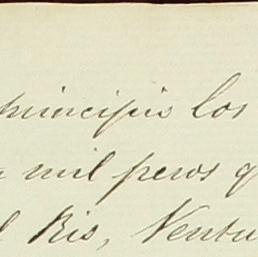 principio los
mil pesos q
l Rio, Ventu